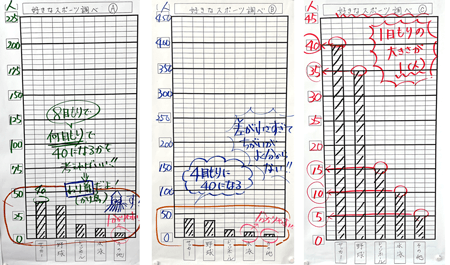 好きなスポーツ調べ A
人
225
200
175
150
125
100
75
50
25
0
8目もりで
何目もりで
40になるかを
考えればいい!!
わり算だよ!
40
サッカー
野球
水泳
その他
好きなスポーツ調べ B
人
450
400
350
300
250
200
150
100
50
0
差が小さすぎて
ちがいが
よくわから
ない!!
4目もりに
40になる
サッカー
野球
水泳
その他
好きなスポーツ調べ C
人
45
40
35
30
25
20
15
10
5
0
1目もりの
大きさが
1(人)
サッカー
野球
水泳
その他